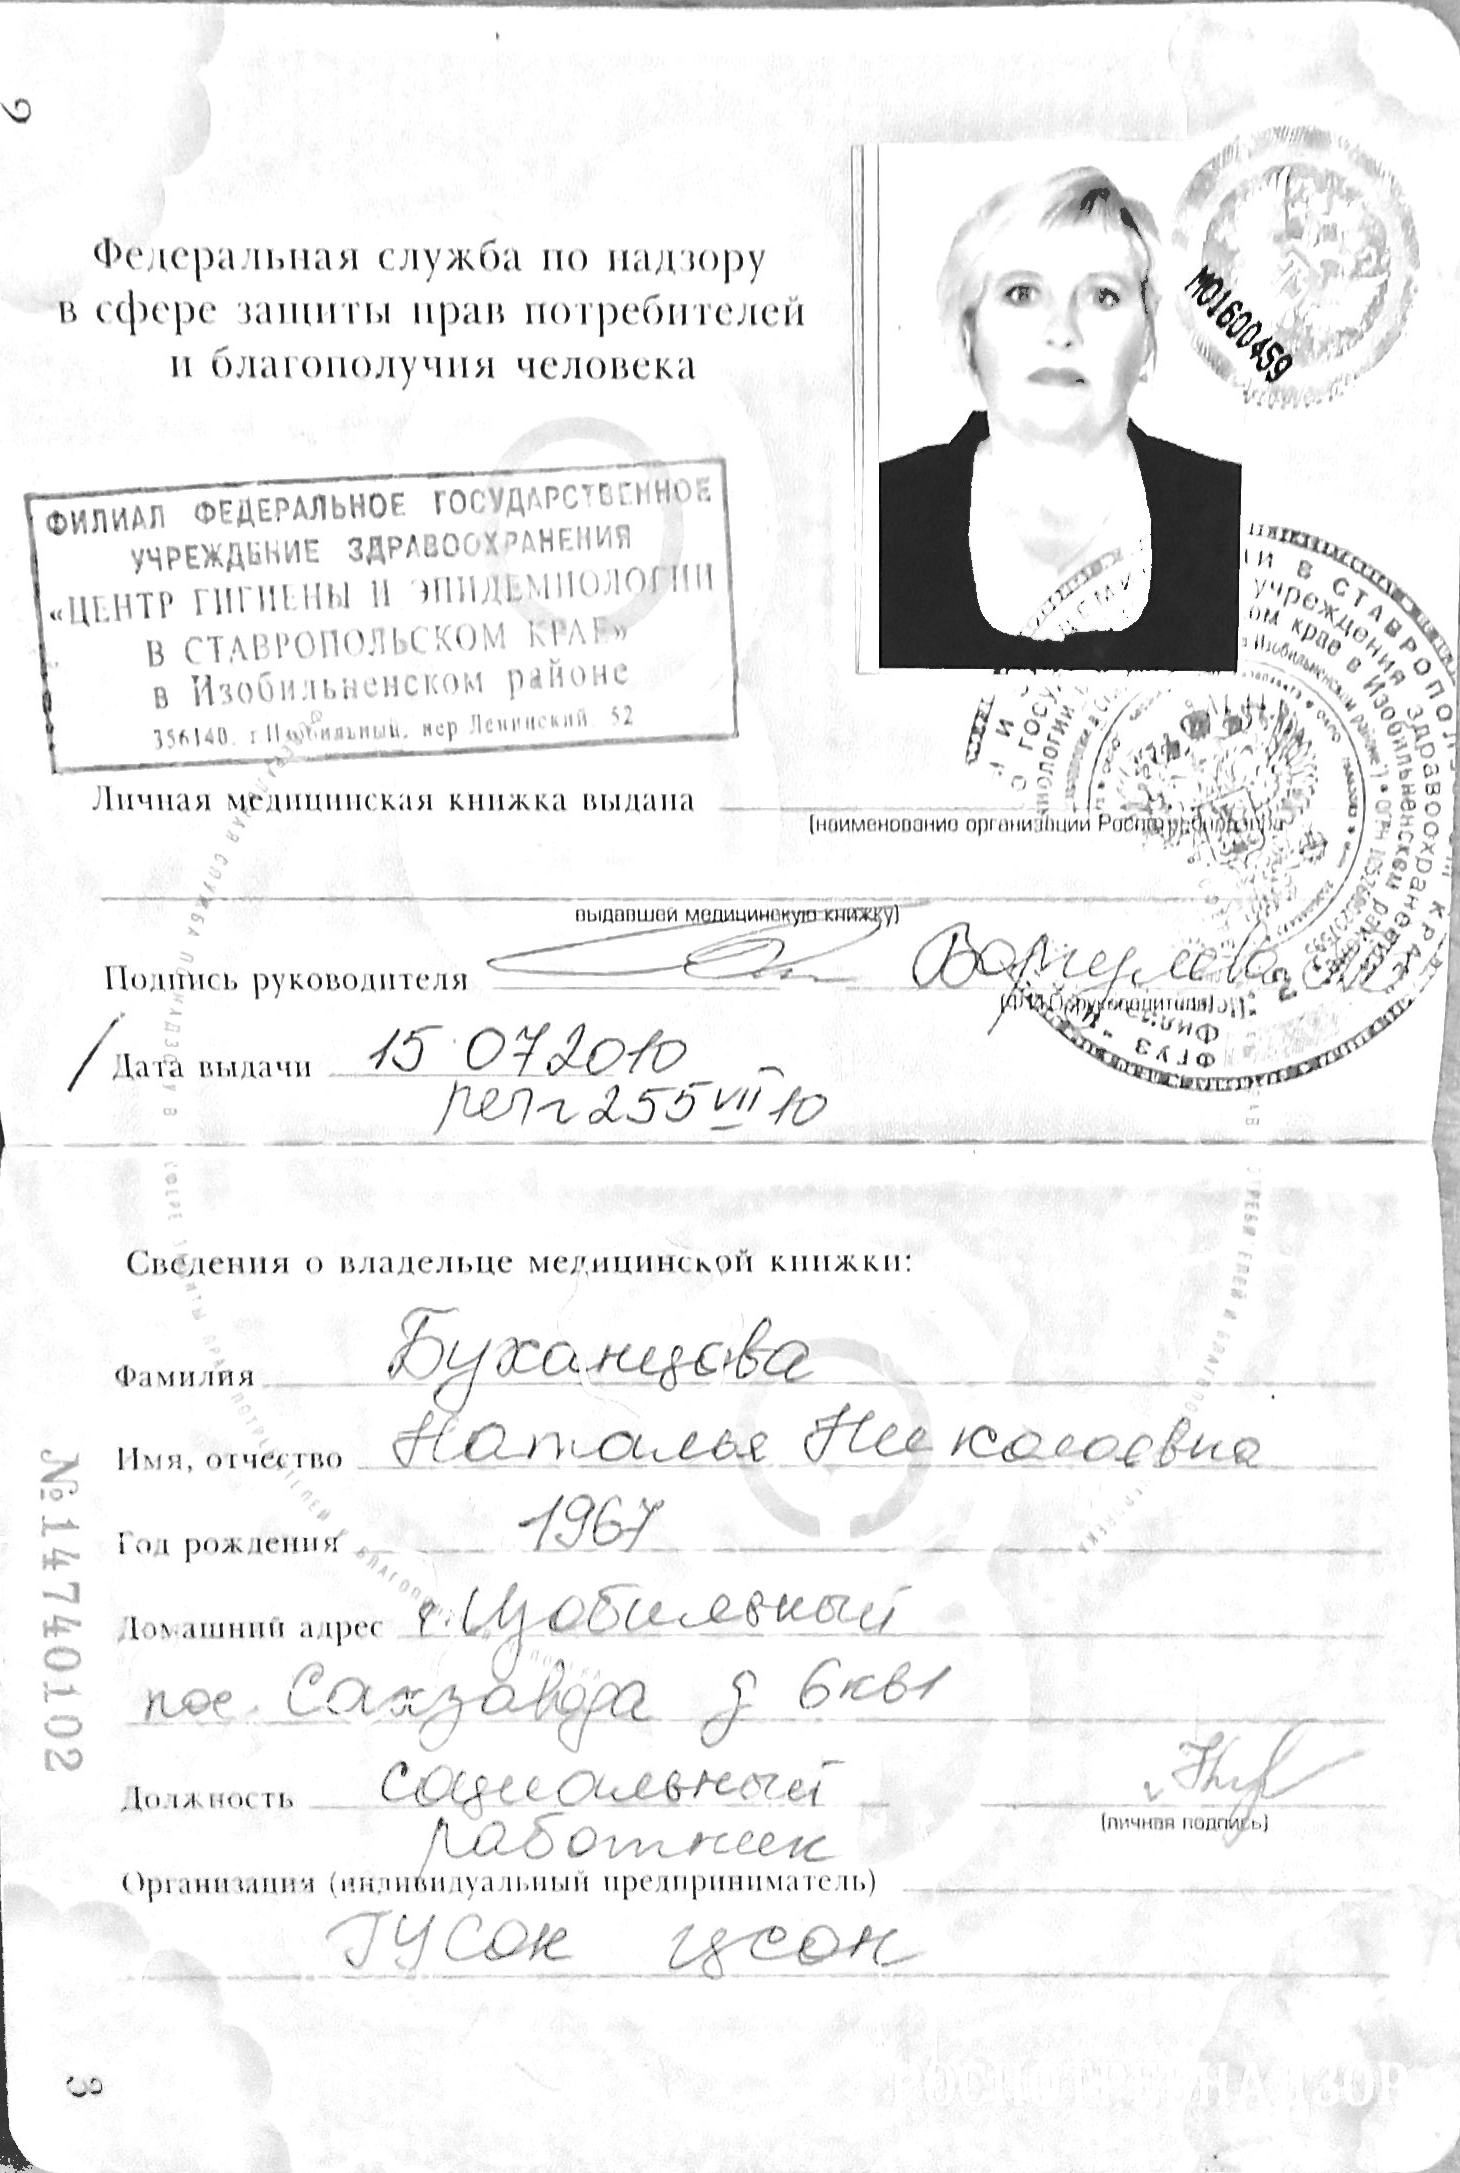 2
Федеральная служба по надзору
в сфере защиты прав потребителей
и благополучия человека
М01600459
ФИЛИАЛ ФЕДЕРАЛЬНОЕ ГОСУДАРСТВЕННОЕ
УЧРЕЖДЕНИЕ ЗДРАВООХРАНЕНИЯ
«ЦЕНТР ГИГИЕНЫ И ЭПИДЕМИОЛОГИИ
В СТАВРОПОЛЬСКОМ КРАЕ»
в Изобильненском районе
356140, г.Изобильный, пер Ленинский 52
Личная медицинская книжка выдана
(наименование организации Роспотребнадзора
выдавшей медицинскую книжку)
Подпись руководителя
(Ф.И.О. руководителя)
Дата выдачи 15 07 2010
рег 255 VII 10
Сведения о владельце медицинской книжки:
Фамилия Буханцова
Имя, отчество Наталья Николаевна
Год рождения 1967
Домашний адрес г. Изобильный
пос. Сахзавода д 6 кв 1
Должность социальный
(личная подпись)
работник
Организация (индивидуальный предприниматель)
ГУСОН ЦСОН
№ 14740102
3
РОСПОТРЕБНАДЗОР